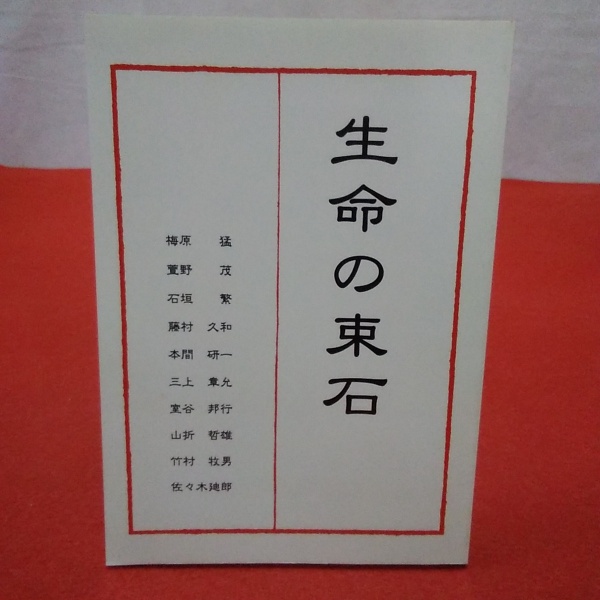 生命の束石
梅原 猛
萱野 茂
石垣 繁
藤村 久和
本間 研一
三上 章允
室谷 邦行
山折 哲雄
竹村 牧男
佐々木廸郎